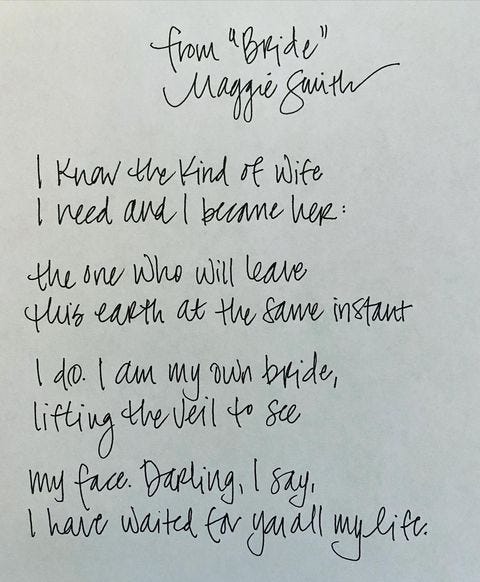 from "Bride"
Maggie Smith
I know the kind of wife
I need and I become her:
the one who will leave
this earth at the same instant
I do. I am my own bride,
lifting the veil to see
my face. Darling, I say,
I have waited for you all my life.